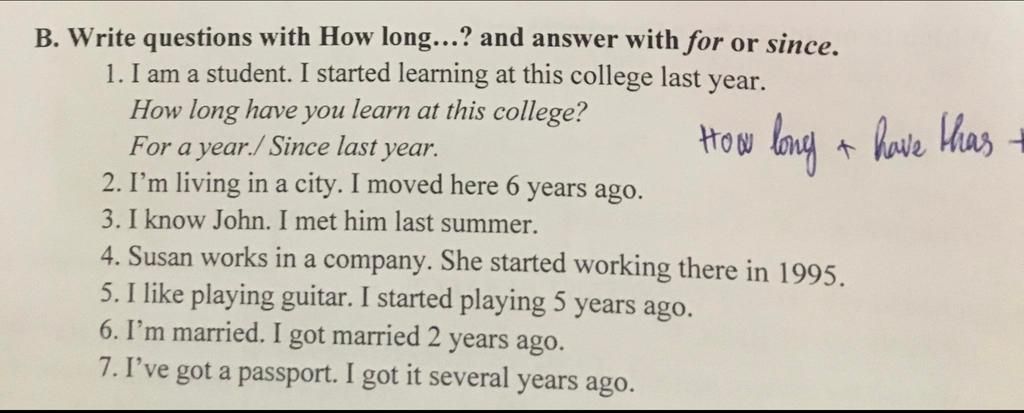 B. Write questions with How long...? and answer with for or since.
1. I am a student. I started learning at this college last year.
How long have you learn at this college?
For a year./ Since last year.
How long + have /has +
2. I'm living in a city. I moved here 6 years ago.
3. I know John. I met him last summer.
4. Susan works in a company. She started working there in 1995.
5. I like playing guitar. I started playing 5 years ago.
6. I'm married. I got married 2 years ago.
7. I've got a passport. I got it several years ago.